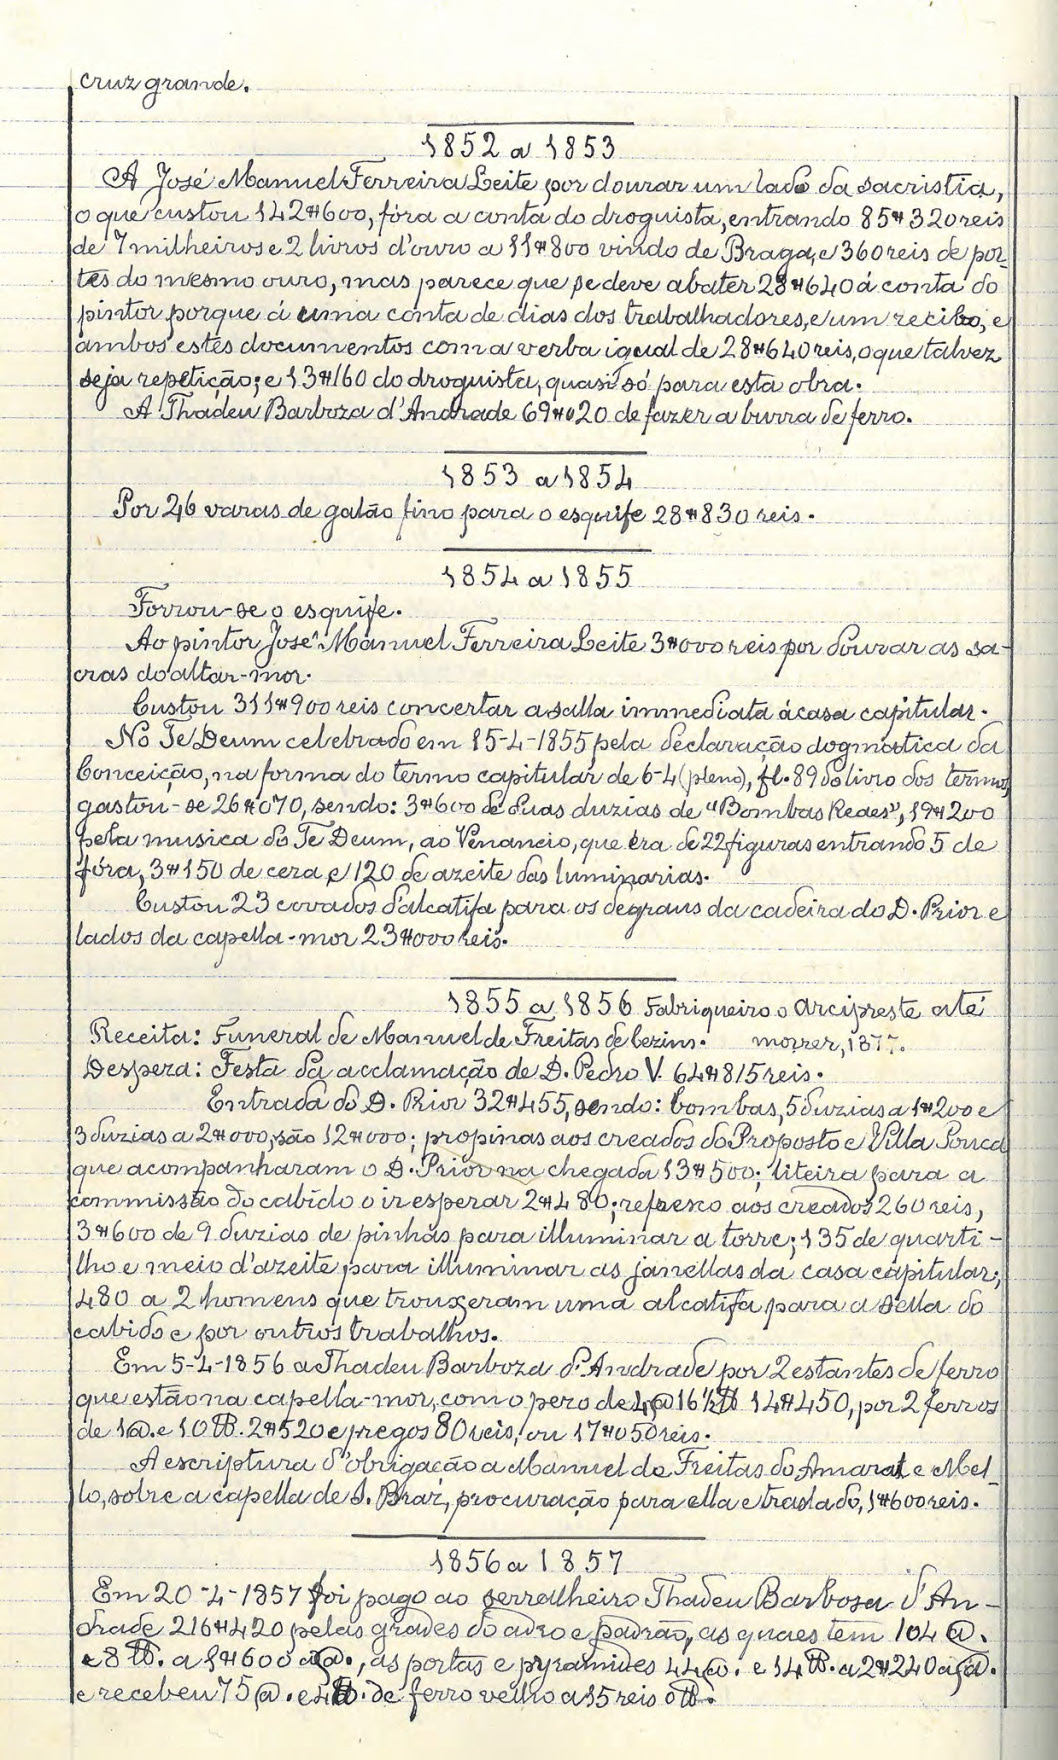 cruz grande.
1852 a 1853
A José Manuel Ferreira Leite, por dourar um lado da sacristia,
o que custou 142#600, fóra a conta do droguista, entrando 85#320 reis
de 7 milheiros e 2 livros d'ouro a 11#800 vindo de Braga, e 360 reis de por-
tes do mesmo ouro, mas parece que se deve abater 28#640 á conta do
pintor porque á uma conta de dias dos trabalhadores, e um recibo, e
ambos estes documentos com a verba igual de 28#640 reis, o que talvez
seja repetição; e 13#160 do droguista, quasi só para esta obra.
A Thadeu Barboza d'Andrade 69#020 de fazer a burra de ferro.
1853 a 1854
Por 26 varas de galão fino para o esquife 28#830 reis.
1854 a 1855
Forrou-se o esquife.
Ao pintor José Manuel Ferreira Leite 3#000 reis por dourar as sa-
cras do altar-mor.
Custou 311#900 reis concertar a salla immediata á casa capitular.
No Te Deum celebrado em 15-4-1855 pela declaração dogmatica da
Conceição, na forma do termo capitular de 6-4 (pleno), fl. 89 do livro dos termos,
gastou-se 26#070, sendo: 3#600 de duas duzias de "Bombas Reaes", 19#200
pela musica do Te Deum, ao Venancio, que éra de 22 figuras entrando 5 de
fóra, 3#150 de cera e 120 de azeite das luminarias.
Custou 23 covados d'alcatifa para os degraus da cadeira do D. Prior e
lados da capella-mor 23#000 reis.
1855 a 1856 Fabriqueiro o Arcipreste até
Receita: Funeral de Manuel de Freitas de Cezins. morrer, 1877.
Despeza: Festa da acclamação de D. Pedro V. 64#815 reis.
Entrada do D. Prior 32#455, sendo: bombas, 5 duzias a 1#200 e
3 duzias a 2#000, são 12#000; propinas aos creados do Proposto e Villa Pouca
que acompanharam o D. Prior na chegada 13#500; liteira para a
commissão do cabido o ir esperar 2#480; refresco aos creados 260 reis,
3#600 de 9 duzias de pinhas para illuminar a torre; 135 de quarti-
lho e meio d'azeite para illuminar as janellas da casa capitular;
480 a 2 homens que trouxeram uma alcatifa para a salla do
cabido e por outros trabalhos.
Em 5-4-1856 a Thadeu Barboza d'Andrade por 2 estantes de ferro
que estão na capella-mor, com o pezo de 4@ 16½ ℔ 14#450, por 2 ferros
de 1@. e 10 ℔. 2#520 e pregos 80 reis, ou 17#050 reis.
A escriptura d'obrigação a Manuel de Freitas do Amaral e Mel-
lo, sobre a capella de S. Braz, procuração para ella e traslado, 1#600 reis.
1856 a 1857
Em 20-4-1857 foi pago ao serralheiro Thadeu Barbosa d'An-
drade 216#420 pelas grades do adro e padrão, as quaes tem 104 @.
e 8 ℔. a 1#600 a @., as portas e pyramides 44@. e 14 ℔. a 2#240 a @.
e recebeu 75 @. e 4 ℔. de ferro velho a 15 reis o ℔.